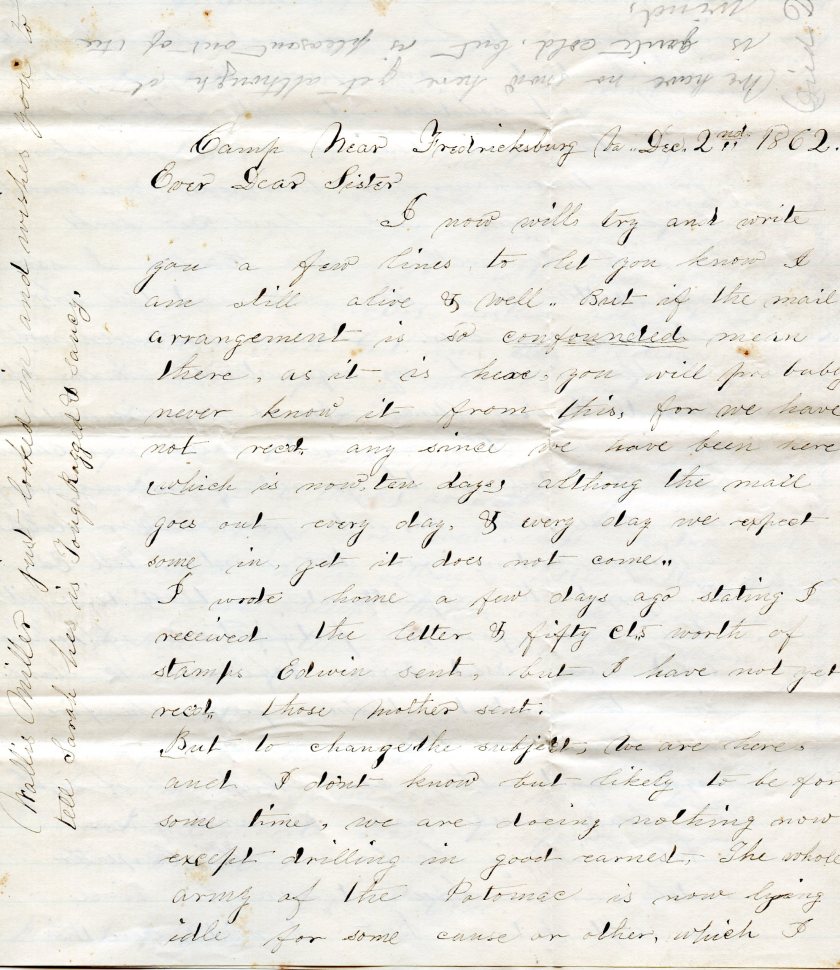 Camp Near Fredricksburg Va. Dec. 2nd 1862.
Ever Dear Sister
I now will try and write
you a few lines to let you know I
am still alive & well. But if the mail
arrangement is so confounded mean
there, as it is here, you will probaby
never know it from this, for we have
not recd. any since we have been here
which is now, ten days althoug the mail
goes out every day, & every day we expect
some in, yet it does not come.
I wrote home a few days ago stating I
received the letter & fifty cts worth of
stamps Edwin sent, but I have not yet
recd. those mother sent.
But to change the subject, We are here
and I dont know but likely to be for
some time, we are doeing nothing now
except drilling in good earnest, The whole
army of the Potomac is now lying
idle for some cause or other, which I
Miller just looked in and wishes you to
tell Sarah hes is Tough Ragged & saucy.
We have no snow here yet although it
is quite cold, but is pleasant out of the
wind,